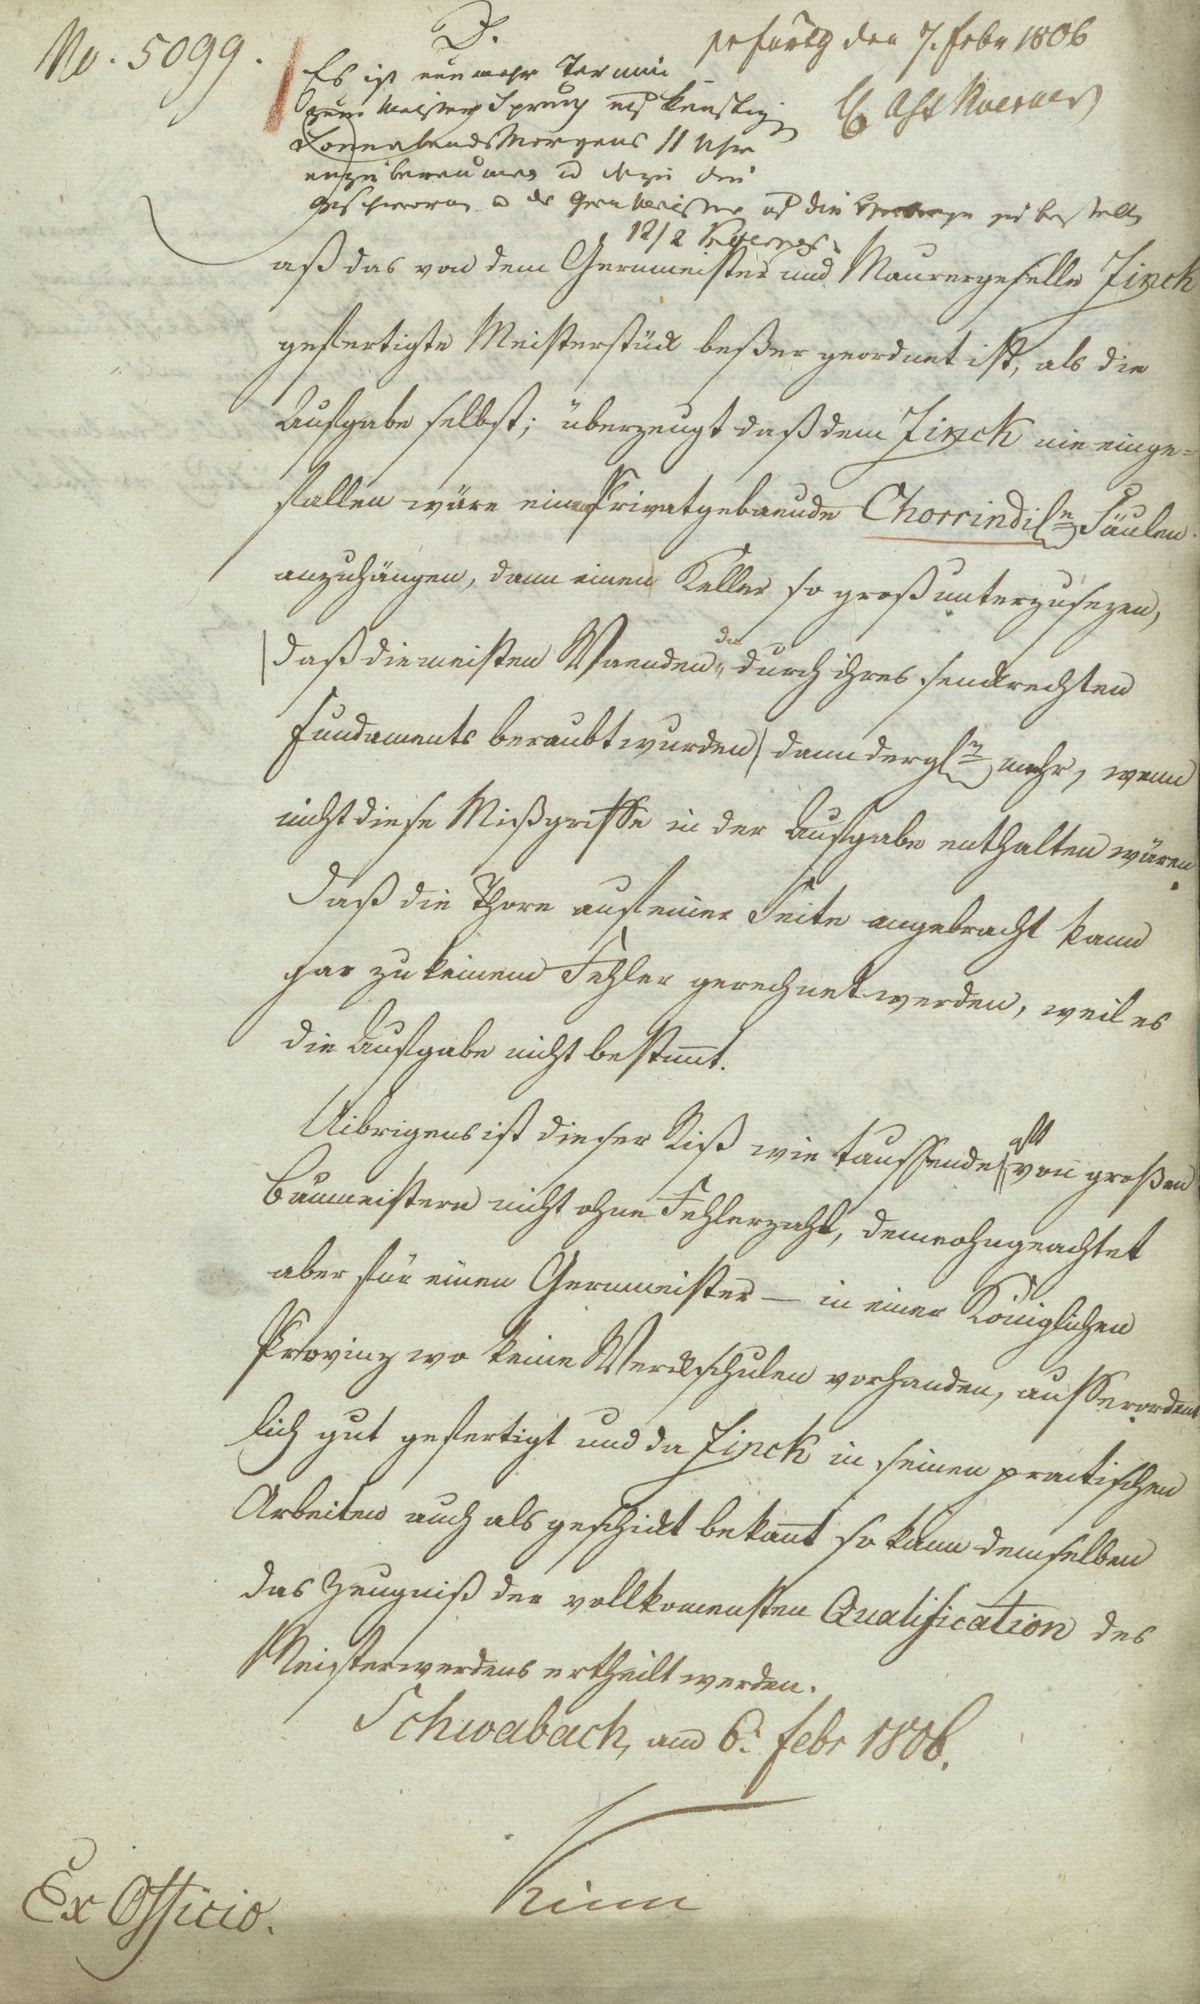 No. 5099.
den 7. Febr 1806
D.
Es ist nunmehr Termin
zum Meister Spruch auf künftigen
Sonnabends Morgens 11 Uhr
anzuberaumen u dazu die
Geschworn u der Germeister auf die zu bestelln
12/2
aß das von dem Germeister und Maurergeselle Zinck
gefertigte Meisterstück beßer geordnet ist, als die
Aufgabe selbst; überzeugt daß dem Zinck nie einge=
fallen wäre einem Privatgebaeude Chorrindisn Säulen
anzuhängen, dann einen Keller so groß unterzusezen,
daß die meisten Waenden da durch ihres senckrechten
Fundaments beraubt wurden / dann dergln mehr, wenn
nicht diese Mißgriffe in der Aufgabe enthalten wären.
Daß die Thore auf einer Seite angebracht kann
gar zu keinem Fehler gerechnet werden, weil es
die Aufgabe nicht bestimt.
Uibrigens ist dieser Riß wie taussende von großen
Baumeistern nicht ohne Fehlerzahl, demohngeachtet
aber für einen Germeister — in einer Königlichen
Provinz wo keine Werckschulen vorhanden, ausserordent
lich gut gefertigt und da Zinck in seinen practischen
Arbeiten auch als geschickt bekant so kann demselben
das Zeugniß der vollkomensten Qualification des
Meisterwerdens ertheilt werden.
Schwabach, am 6. Febr 1806.
Ex Officio.